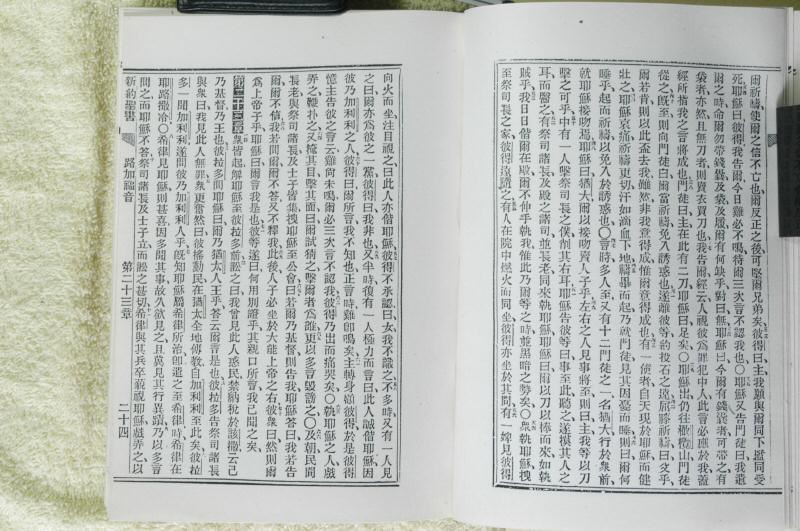 爾祈禱、使爾之信不亡也、爾反正之後、可堅爾兄弟矣、彼得曰、主、我願與爾同下監、同受
死、耶穌曰、彼得、我告爾、今日雞必不鳴、待爾三次言不認我也、○耶穌又告門徒曰、我遣
爾之時、命爾勿帶錢囊、及袋、及履、爾有何缺乎、對曰、無、耶穌曰、今爾有錢囊者可帶之、有
袋者亦然、且無刀者、則賣衣買刀也、我告爾、經云、人視彼爲罪犯中人、此言必應於我、蓋
經所指我之言將成也、門徒曰、主、在此有二刀、耶穌曰、足矣、○耶穌出、仍往橄欖山、門徒
從之、既至、則向門徒曰、爾當祈禱、免入誘惑也、遂離彼等、約投石之遠、屈膝祈禱曰、父乎、
爾若肯、則以此盃去我、雖然、非我意得成、惟爾意得成也、有一使者、自天現於耶穌而健
壯之、耶穌哀痛、祈禱更切、汗如滴血下地、禱畢而起、乃就門徒、見其因憂而睡、則曰、爾何
睡乎、起而祈禱、以免入於誘惑也、○言時、多人至、又有十二門徒之一、名猶大、行於衆前、
就耶穌接吻焉、耶穌曰、猶大、爾以接吻賣人子乎、左右之人、見事將至、則曰、主、我等以刀
擊之可乎、中有一人、擊祭司長之僕、削其右耳、耶穌告彼等曰、事至此聽之、遂摸其人之
耳、而醫之、有祭司諸長、及殿之諸司、並長老、同來執耶穌、耶穌曰、爾以刀以棒而來、如執
賊乎、我日日偕爾在殿、爾不伸手執我、惟此乃爾等之時、並黑暗之勢矣、○衆執耶穌、拽
至祭司長之家、彼得遠隨之、有人在院中燃火而同坐、彼得亦坐於其間、有一婢、見彼得
向火而坐、注目視之曰、此人亦偕耶穌、彼得不承認曰、女、我不識之、不多時、又有一人見
之曰、爾亦爲彼之一黨、彼得曰、我非也、又半時、復有一人極力而言曰、此人誠偕耶穌、因
彼乃加利利之人、彼得曰、爾所言、我不知也、正言時、雞卽鳴矣、主轉身顧彼得、於是彼得
憶主告彼之言云、雞尚未鳴、爾必三次言不認我、彼得乃出而痛哭矣、○執耶穌之人戲
弄之、鞭扑之、又掩其目、擊其面曰、爾試猜之、擊爾者爲誰、更以多言毀謗之、○及朝、民間
長老、與祭司諸長、及士子皆集、拽耶穌至公會曰、若爾乃基督、則告我、耶穌答曰、我若告
爾、爾不信、我若問爾、爾不答、又不釋我、此後人子必坐於大能上帝之右、彼衆曰、然則爾
爲上帝子乎、耶穌曰、爾言我是也、彼等遂曰、何用別證乎、其親口所言、我已聞之矣、
第二十三章 衆皆起、解耶穌至彼拉多前、訟之曰、我曾見此人惑民、禁納稅於該撒、云己
乃基督乃王也、彼拉多問耶穌曰、爾乃猶太人王乎、答云、爾言是也、彼拉多告祭司諸長
與衆曰、我見此人無罪、衆更奮然曰、彼搖動民、在猶太全地傳教、自加利利至此矣、彼拉
多一聞加利利、遂問彼乃加利利人乎、既知耶穌屬希律所治、卽遣之至希律、時希律在
耶路撒冷、○希律見耶穌、則甚喜、因多聞其事、故久欲見之、且冀見其行異蹟、乃以多言
問之、而耶穌不答、祭司諸長及士子立而訟之甚切、希律與其兵卒、藐視耶穌、戲弄之、以
新約聖書 路加福音 第二十三章 二十四